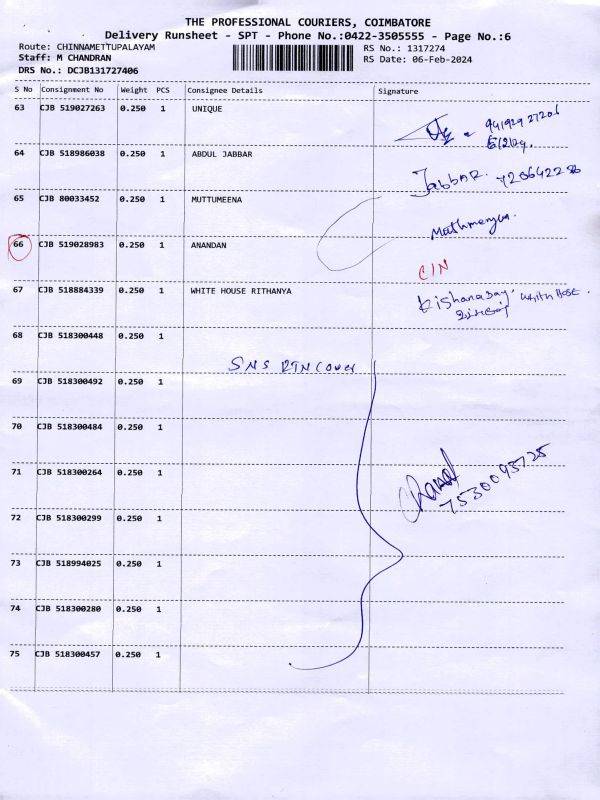 THE PROFESSIONAL COURIERS, COIMBATORE
Delivery Runsheet - SPT - Phone No.:0422-3505555 - Page No.:6
Route: CHINNAMETTUPALAYAM RS No.: 1317274
Staff: M CHANDRAN RS Date: 06-Feb-2024
DRS No.: DCJB131727406
S No Consignment No Weight PCS Consignee Details Signature
63 CJB 519027263 0.250 1 UNIQUE
64 CJB 518986038 0.250 1 ABDUL JABBAR
Jabbar.
65 CJB 80033452 0.250 1 MUTTUMEENA
66 CJB 519028983 0.250 1 ANANDAN
C/N
67 CJB 518884339 0.250 1 WHITE HOUSE RITHANYA
68 CJB 518300448 0.250 1
SNS RTN Cover
69 CJB 518300492 0.250 1
70 CJB 518300484 0.250 1
71 CJB 518300264 0.250 1
7530093725
72 CJB 518300299 0.250 1
73 CJB 518994025 0.250 1
74 CJB 518300280 0.250 1
75 CJB 518300457 0.250 1